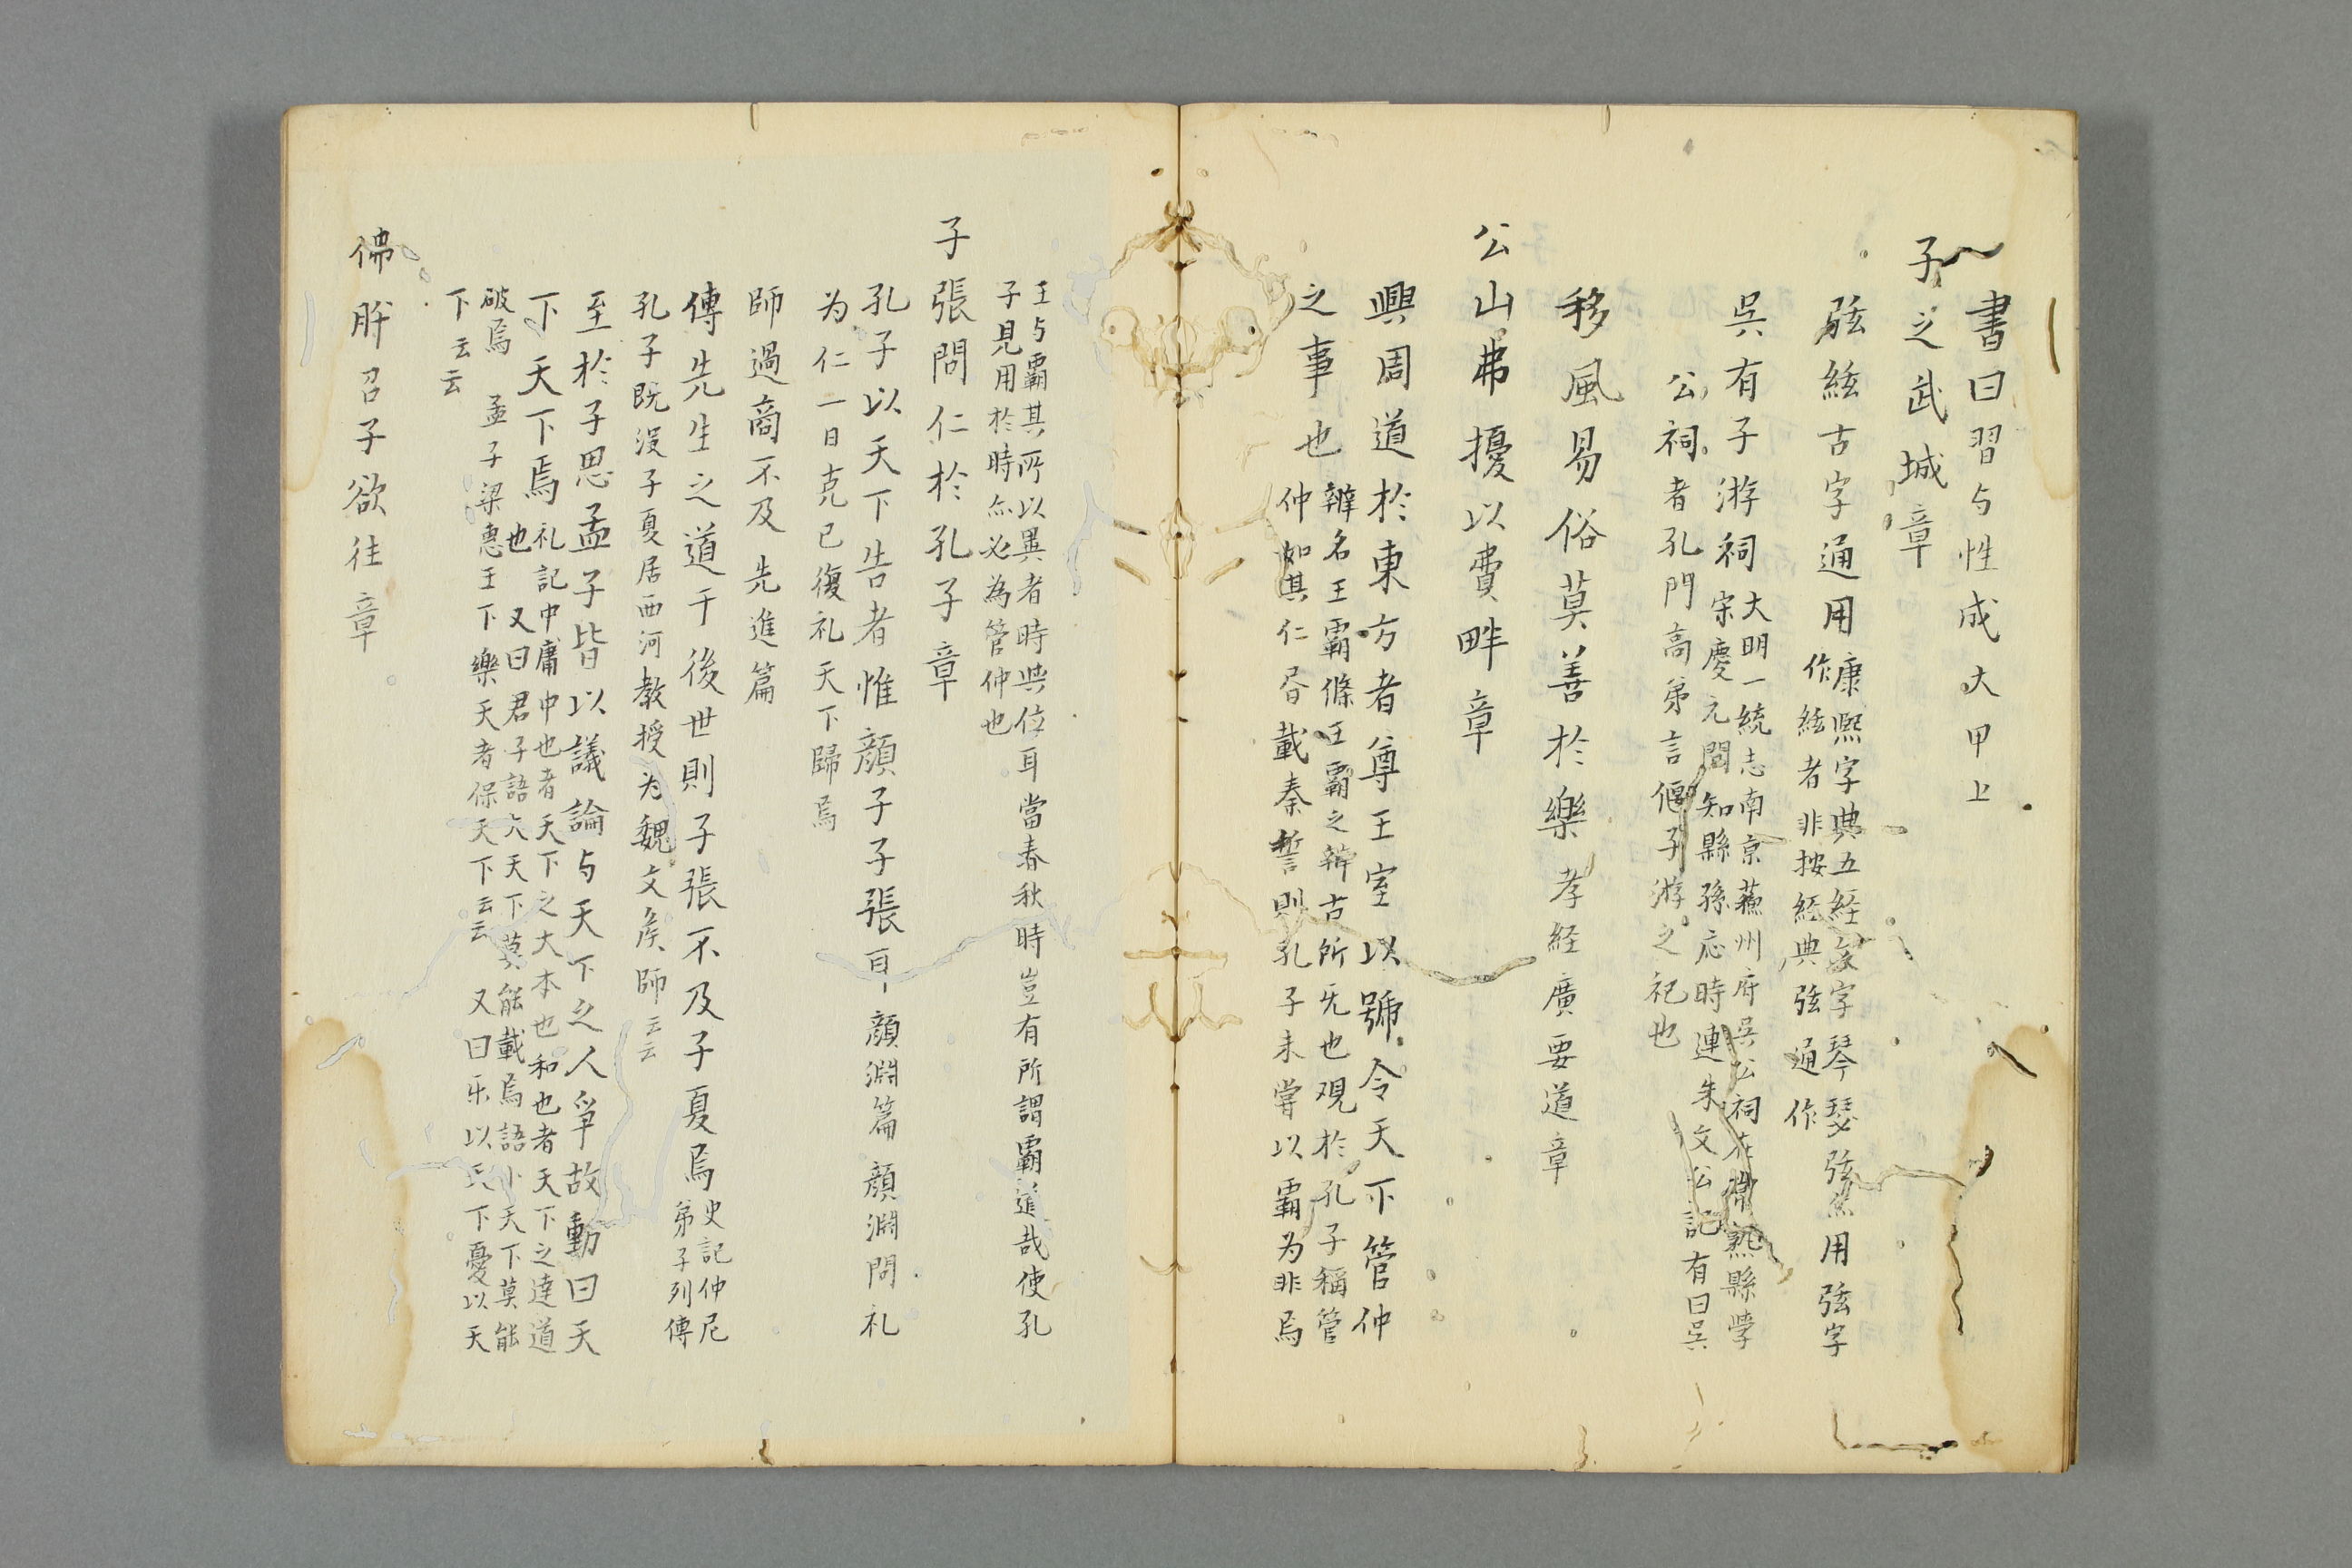 書曰習与性成大甲上
子之武城章
弦絃古字通用康熙字典五経文字琴瑟弦亦用弦字
作絃者非按経典弦通作
呉有子游祠大明一統志南京蘇州府呉公祠在常熟縣學
宋慶元間知縣孫応時連朱文公記有曰呉
公祠者孔門高弟言偃子游之祀也
移風易俗莫善於樂孝経廣要道章
公山弗擾以費畔章
興周道於東方者尊王室以號令天下管仲
之事也辨名王霸條王霸之辨古所无也覌於孔子稱管
仲如其仁昏載秦誓則孔子未嘗以霸为非焉
王与霸其所以異者時与位耳當春秋時豈有所謂霸道哉使孔
子見用於時亦必為管仲也
子張問仁於孔子章
孔子以天下告者惟顔子子張耳顔淵篇顔淵問礼
为仁一日克己復礼天下歸焉
師過商不及先進篇
傳先生之道于後世則子張不及子夏焉史記仲尼
弟子列傳
孔子既没子夏居西河教授为魏文矦師云云
至於子思孟子皆以議論与天下之人爭故動曰天
下天下焉礼記中庸中也者天下之大本也和也者天下之達道
也又曰君子語大天下莫能載焉語小天下莫能
破焉孟子梁惠王下樂天者保天下云云又曰乐以天下憂以天
下云云
佛肸召子欲往章